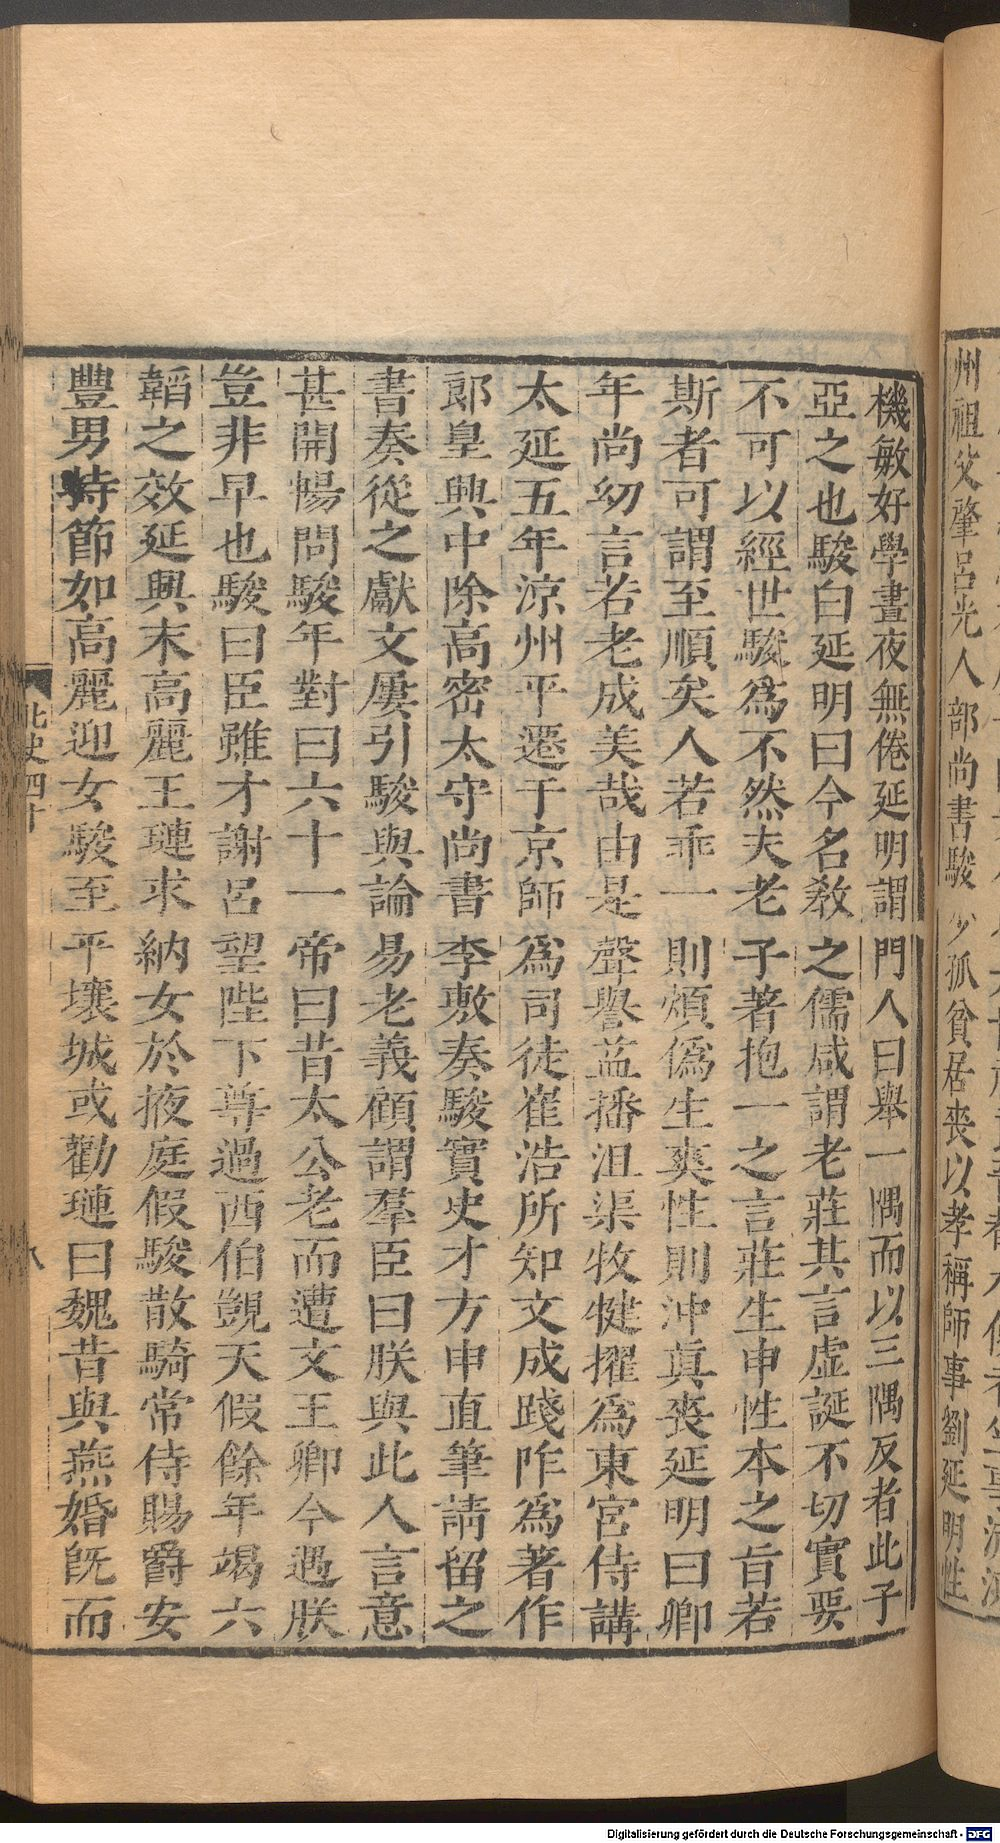 州祖父肇呂光人部尚書駿少孤貧居喪以孝稱師事劉延明性
機敏好學晝夜無倦延明謂門人曰舉一隅而以三隅反者此子
亞之也駿白延明曰今名教之儒咸謂老莊其言虛誕不切實要
不可以經世駿爲不然夫老子著抱一之言莊生申性本之旨若
斯者可謂至順矣人若乖一則煩僞生爽性則沖眞喪延明曰卿
年尚幼言若老成美哉由是聲譽益播沮渠牧犍擢爲東宮侍講
太延五年涼州平遷于京師爲司徒崔浩所知文成踐阼爲著作
郎皇興中除高密太守尚書李敷奏駿實史才方申直筆請留之
書奏從之獻文屢引駿與論易老義顧謂羣臣曰朕與此人言意
甚開暢問駿年對曰六十一帝曰昔太公老而遭文王卿今遇朕
豈非早也駿曰臣雖才謝呂望陛下尊過西伯覬天假餘年竭六
韜之效延興末高麗王璉求納女於掖庭假駿散騎常侍賜爵安
豐男持節如高麗迎女駿至平壤城或勸璉曰魏昔與燕婚旣而
北史四十
Digitalisierung gefördert durch die Deutsche Forschungsgemeinschaft - DFG